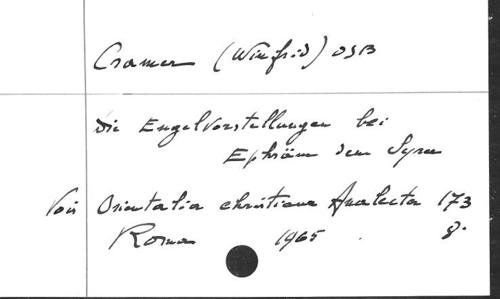 Cramer (Winfrid) OSB
Die Engelvorstellungen bei
Ephräm dem Syrer
Voir Orientalia christiana Analecta 173
Roma 1965. 8°